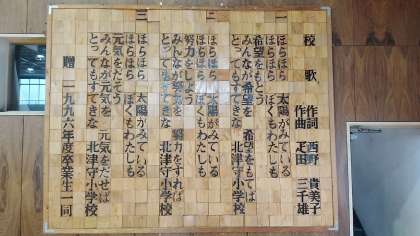 校歌
作詞 西野 貴美子
作曲 疋田 三千雄
一
ほらほら 太陽がみている
ほらほら ぼくもわたしも
希望をもとう
みんなが希望を 希望をもてば
とってもすてきな 北津守小学校
二
ほらほら 太陽がみている
ほらほら ぼくもわたしも
努力をしよう
みんなが努力を 努力をすれば
とってもすてきな 北津守小学校
三
ほらほら 太陽がみている
ほらほら ぼくもわたしも
元気をだそう
みんなが元気を 元気をだせば
とってもすてきな 北津守小学校
贈 一九九六年度卒業生一同